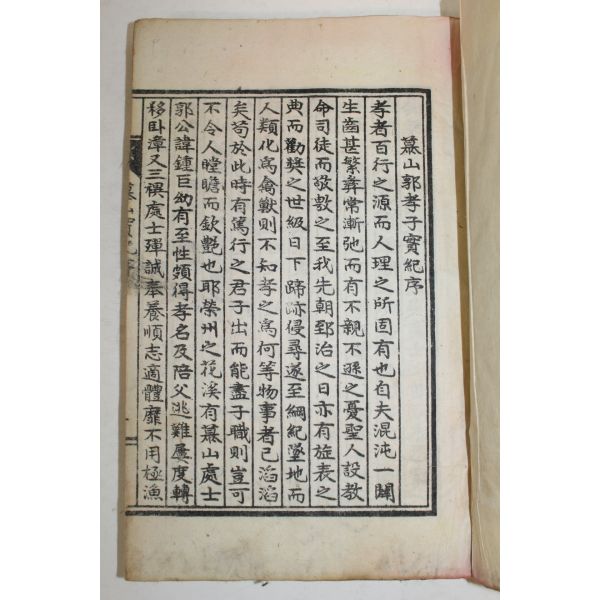 慕山郭孝子實紀序
孝者百行之源而人理之所固有也自夫混沌一闢
生齒甚繁彛常漸弛而有不親不遜之憂聖人設敎
命司徒而敬敷之至我先朝郅治之日亦有㫌表之
典而勸奬之世級日下蹄跡侵尋遂至綱紀墜地而
人類化爲禽獸則不知孝之爲何等物事者已滔滔
矣苟於此時有篤行之君子出而能盡子職則豈可
不令人瞠瞻而欽艶也耶榮州之花溪有慕山處士
郭公諱鍾巨幼有至性頗得孝名及陪父逃難屢度轉
移卧漳又三禩處士殫誠奉養順志適體靡不用極漁
慕山實紀序